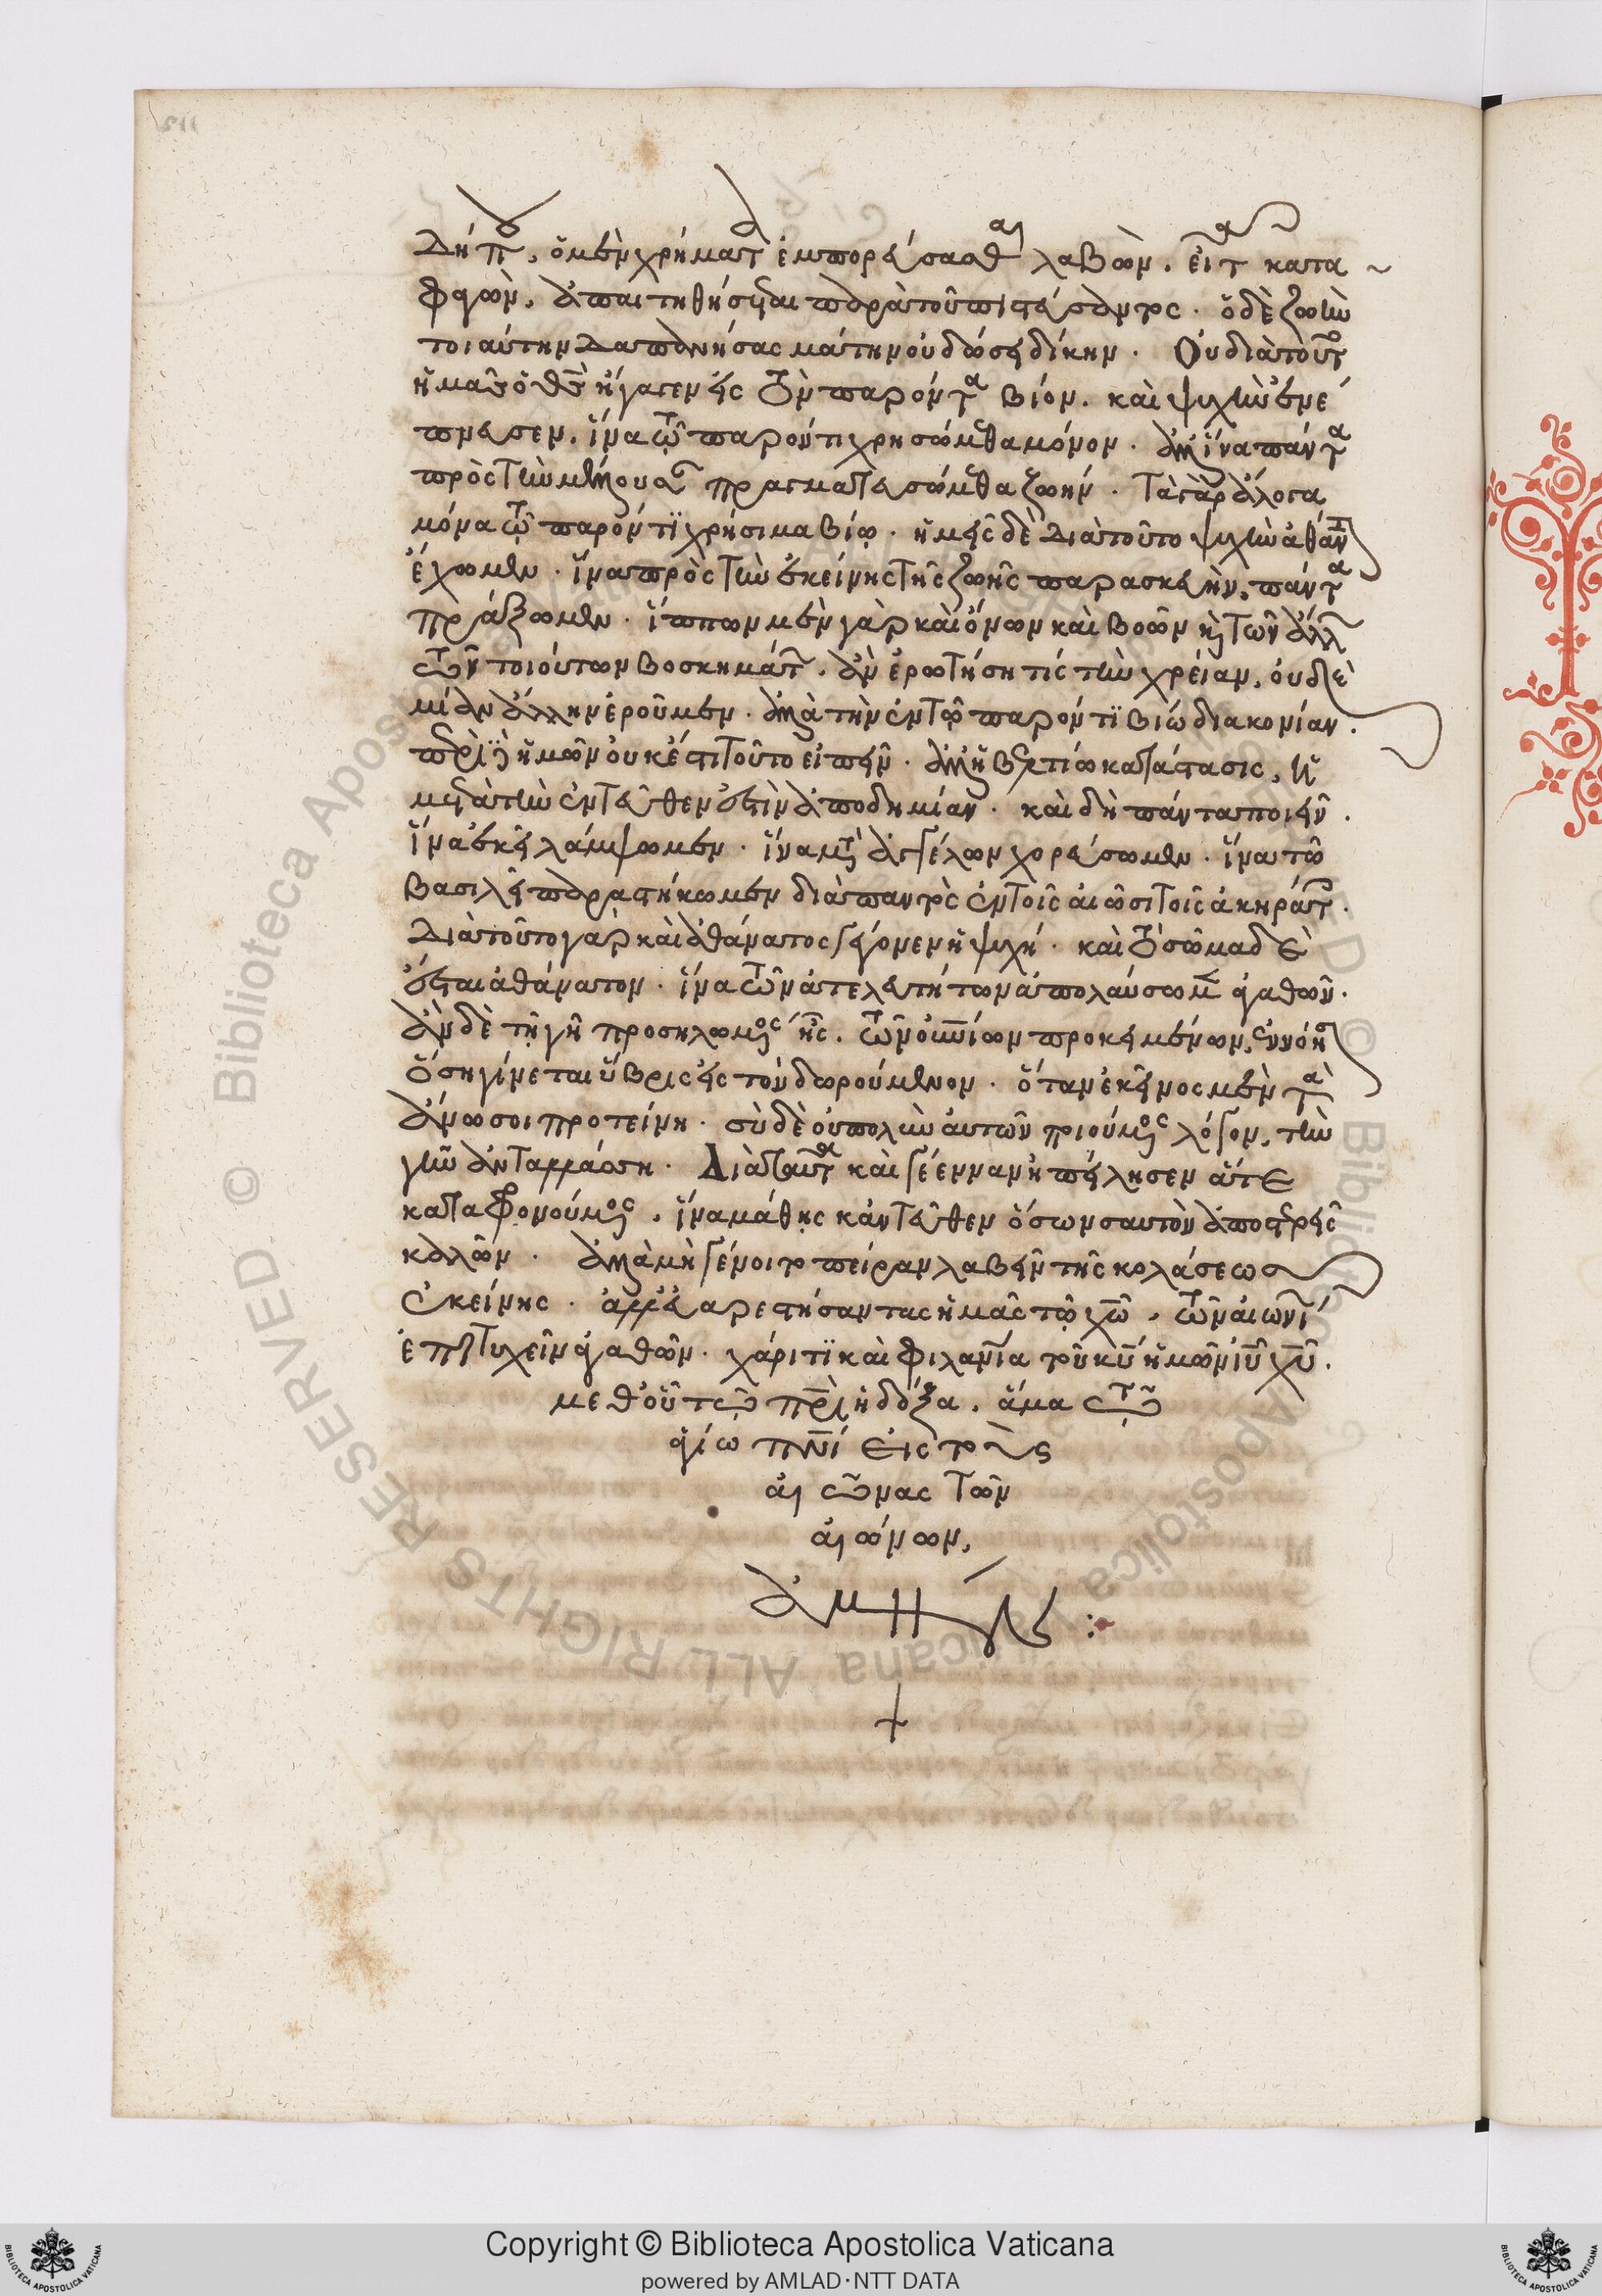 δήπου, ὁ μὲν χρήματα ἐμπορεύσασθαι λαβὼν, εἶτα κατα
φαγὼν, ἀπαιτηθήσεται παρὰ τοῦ πιστεύσαντος· ὁ δὲ ζωὴν
τοιαύτην δαπανήσας μάτην οὐ δώσει δίκην· Οὐ διὰ τοῦτο
ἡμᾶς ὁ θς ἤγαγεν εἰς τὸν παρόντα βίον. καὶ ψυχὴν ἐνέ
πνευσεν. ἵνα τῷ παρόντι χρησώμεθα μόνον· ἀλλ' ἵνα πάντα
πρὸς τὴν μέλλουσαν πραγματευσώμεθα ζωήν· Τὰ γὰρ ἄλογα
μόνα τῷ παρόντι χρήσιμα βίῳ· ἡμεῖς δὲ διὰ τοῦτο ψυχὴν ἀθάνατον
ἔχομεν· ἵνα πρὸς τὴν ἐκείνης τῆς ζωῆς παρασκευὴν, πάντα
πράξωμεν· ἵππων μὲν γὰρ καὶ ὄνων καὶ βοῶν καὶ τῶν ἄλλων
τῶν τοιούτων βοσκημάτων, ἂν ἐρωτήσῃ τίς τὴν χρείαν, οὐδε
μίαν ἄλλην ἐροῦμεν· ἀλλὰ τὴν ἐν τῷ παρόντι βίῳ διακονίαν.
περὶ δὲ ἡμῶν οὐκ ἔστι τοῦτο εἰπεῖν· ἀλλ' ἡ βελτίω κατάστασις, ἡ
μετὰ τὴν ἐντεῦθεν ἐστὶν ἀποδημίαν· καὶ δὴ πάντα ποιεῖν.
ἵνα ἐκεῖ λάμψωμεν· ἵνα μετὰ ἀγγέλων χορεύσωμεν· ἵνα τῷ
βασιλεῖ παραστήκωμεν διὰ παντὸς ἐν τοῖς αἰῶσι τοῖς ἀκηράτοις.
Διὰ τοῦτο γὰρ καὶ ἀθάνατος γέγονεν ἡ ψυχή· καὶ τὸ σῶμα δὲ
ἔσται ἀθάνατον· ἵνα τῶν ἀτελευτήτων ἀπολαύσωμεν ἀγαθῶν.
ἂν δὲ τῇ γῇ προσηλωμένος ᾖς, τῶν οὐνίων προκειμένων, ἐννόησον
ὅση γίνεται ὕβρις εἰς τὸν δωρούμενον· ὅταν ἐκεῖνος μὲν τὰ
ἄνω σοι προτείνῃ· σὺ δὲ οὐ πολὺν αὐτῶν ποιούμενος λόγον, τὴν
γῆν ἀνταλλάσσῃ· Διὰ ταῦτα καὶ γέενναν ἠπείλησεν ἅτε
καταφρονούμενος, ἵνα μάθῃς κἀντεῦθεν ὅσων σαυτὸν ἀποστερεῖς
καλῶν· ἀλλὰ μὴ γένοιτο πεῖραν λαβεῖν τῆς κολάσεως
ἐκείνης· ἀλλ' εὐαρεστήσαντας ἡμᾶς τῷ χῷ, τῶν αἰωνί
ἐπιτυχεῖν ἀγαθῶν· χάριτι καὶ φιλανία τοῦ κυ ἡμῶν ιυ χυ.
μεθ' οὗ τῷ πρὶ ἡ δόξα, ἅμα τῷ
ἁγίω πνὶ εἰς τοὺς
αἰῶνας τῶν
αἰώνων,
ἀμήν :